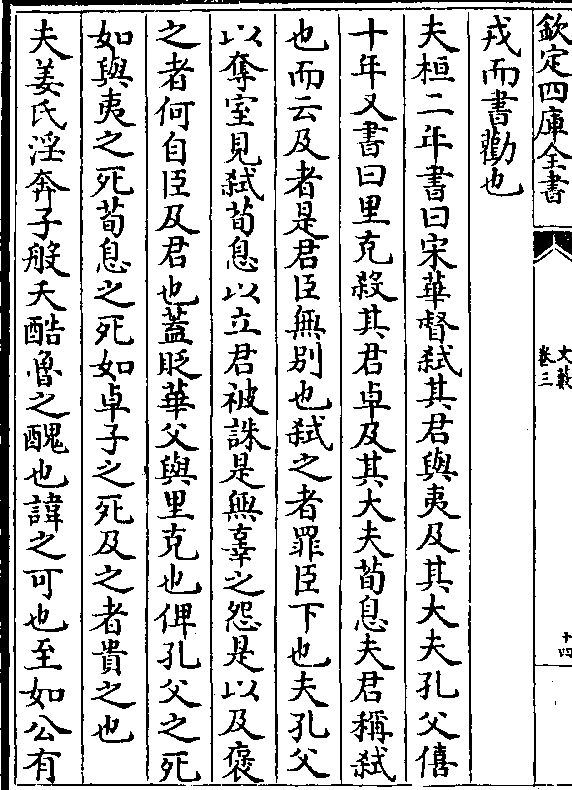 欽定四庫全書
文藪
卷三
十四
戎而書勸也
夫桓二年書曰宋華督弑其君與夷及其大夫孔父僖
十年又書曰里克殺其君卓及其大夫荀息夫君稱弑
也而云及者是君臣無別也弑之者罪臣下也夫孔父
以奪室見弑荀息以立君被誅是無辜之怨是以及褒
之者何自臣及君也蓋貶華父與里克也俾孔父之死
如與夷之死荀息之死如卓子之死及之者貴之也
夫姜氏淫奔子般夭酷魯之醜也諱之可也至如公有